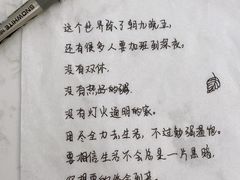 SNOWHITE
这个世界除了朝九晚五,
还有很多人要加班到深夜。
没有双休.
没有热好的粥.
没有灯火通明的家。
用尽全力去生活，不过勉强温饱。
要相信生活不会总是一片黑暗,